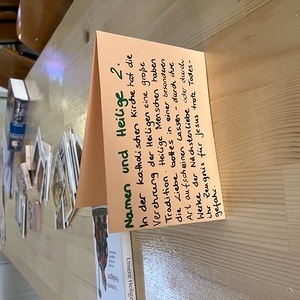 Namen und Heilige 2.
In der Katholischen Kirche hat die
Verehrung der Heiligen eine große
Tradition. Heilige Menschen haben
die Liebe Gottes in einer besonderen
Art aufscheinen lassen - durch ihre
Werke der Nächstenliebe oder durch
ihr Zeugnis für Jesus trotz Todes-
gefahr.